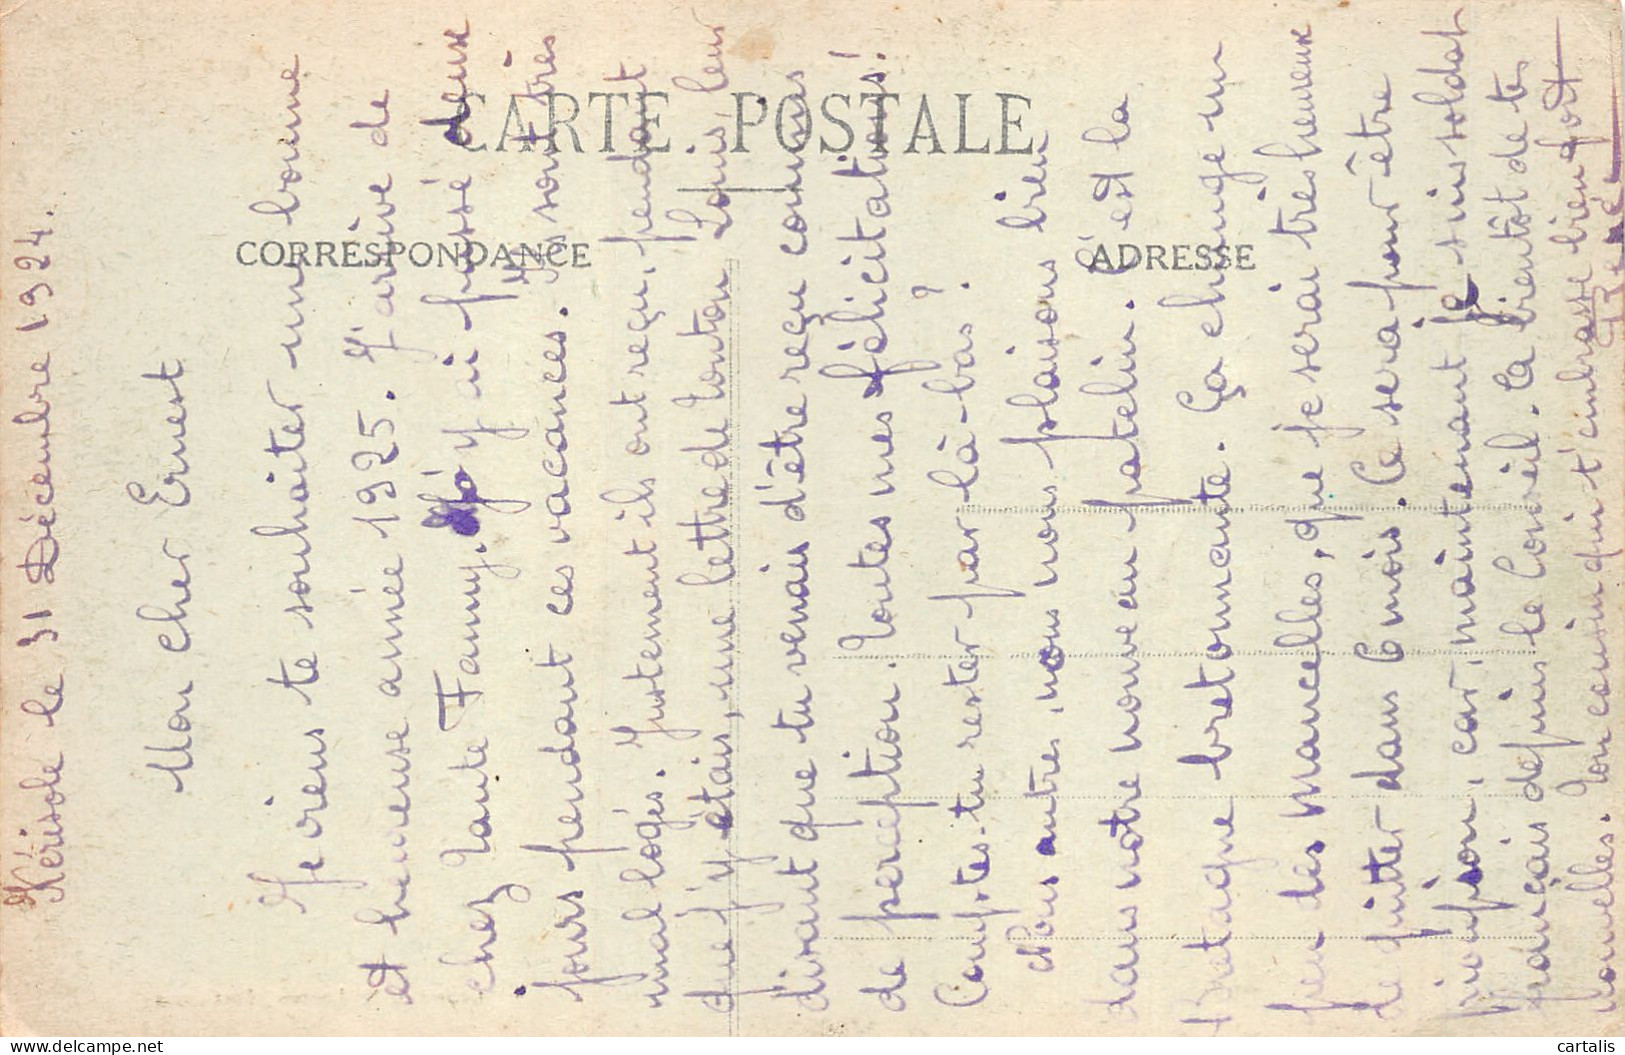 CARTE POSTALE
CORRESPONDANCE
ADRESSE
Kérisole le 31 Décembre 1924.
Mon cher Ernest
Je viens te souhaiter une bonne
et heureuse année 1925. J'arrive de
chez Tante Fanny. J'y ai passé deux
jours pendant ces vacances. Ils sont très
mal logés. Justement ils ont reçu, pendant
que j'y étais, une lettre de Tonton Louis, leur
disant que tu venais d'être reçu commis
de perception. Toutes mes félicitations!
Comptes-tu rester par là-bas?
Nous autres, nous nous plaisons bien
dans notre nouveau patelin. C'est la
Bretagne bretonnante. Ça change un
peu des Mancelles, que je serai très heureux
de quitter dans 6 mois. Ce sera peut être
car, maintenant je suis soldat
français depuis le Conseil. A bientôt de tes
nouvelles. Ton cousin qui t'embrasse bien fort
René
cartalis
delcampe.net